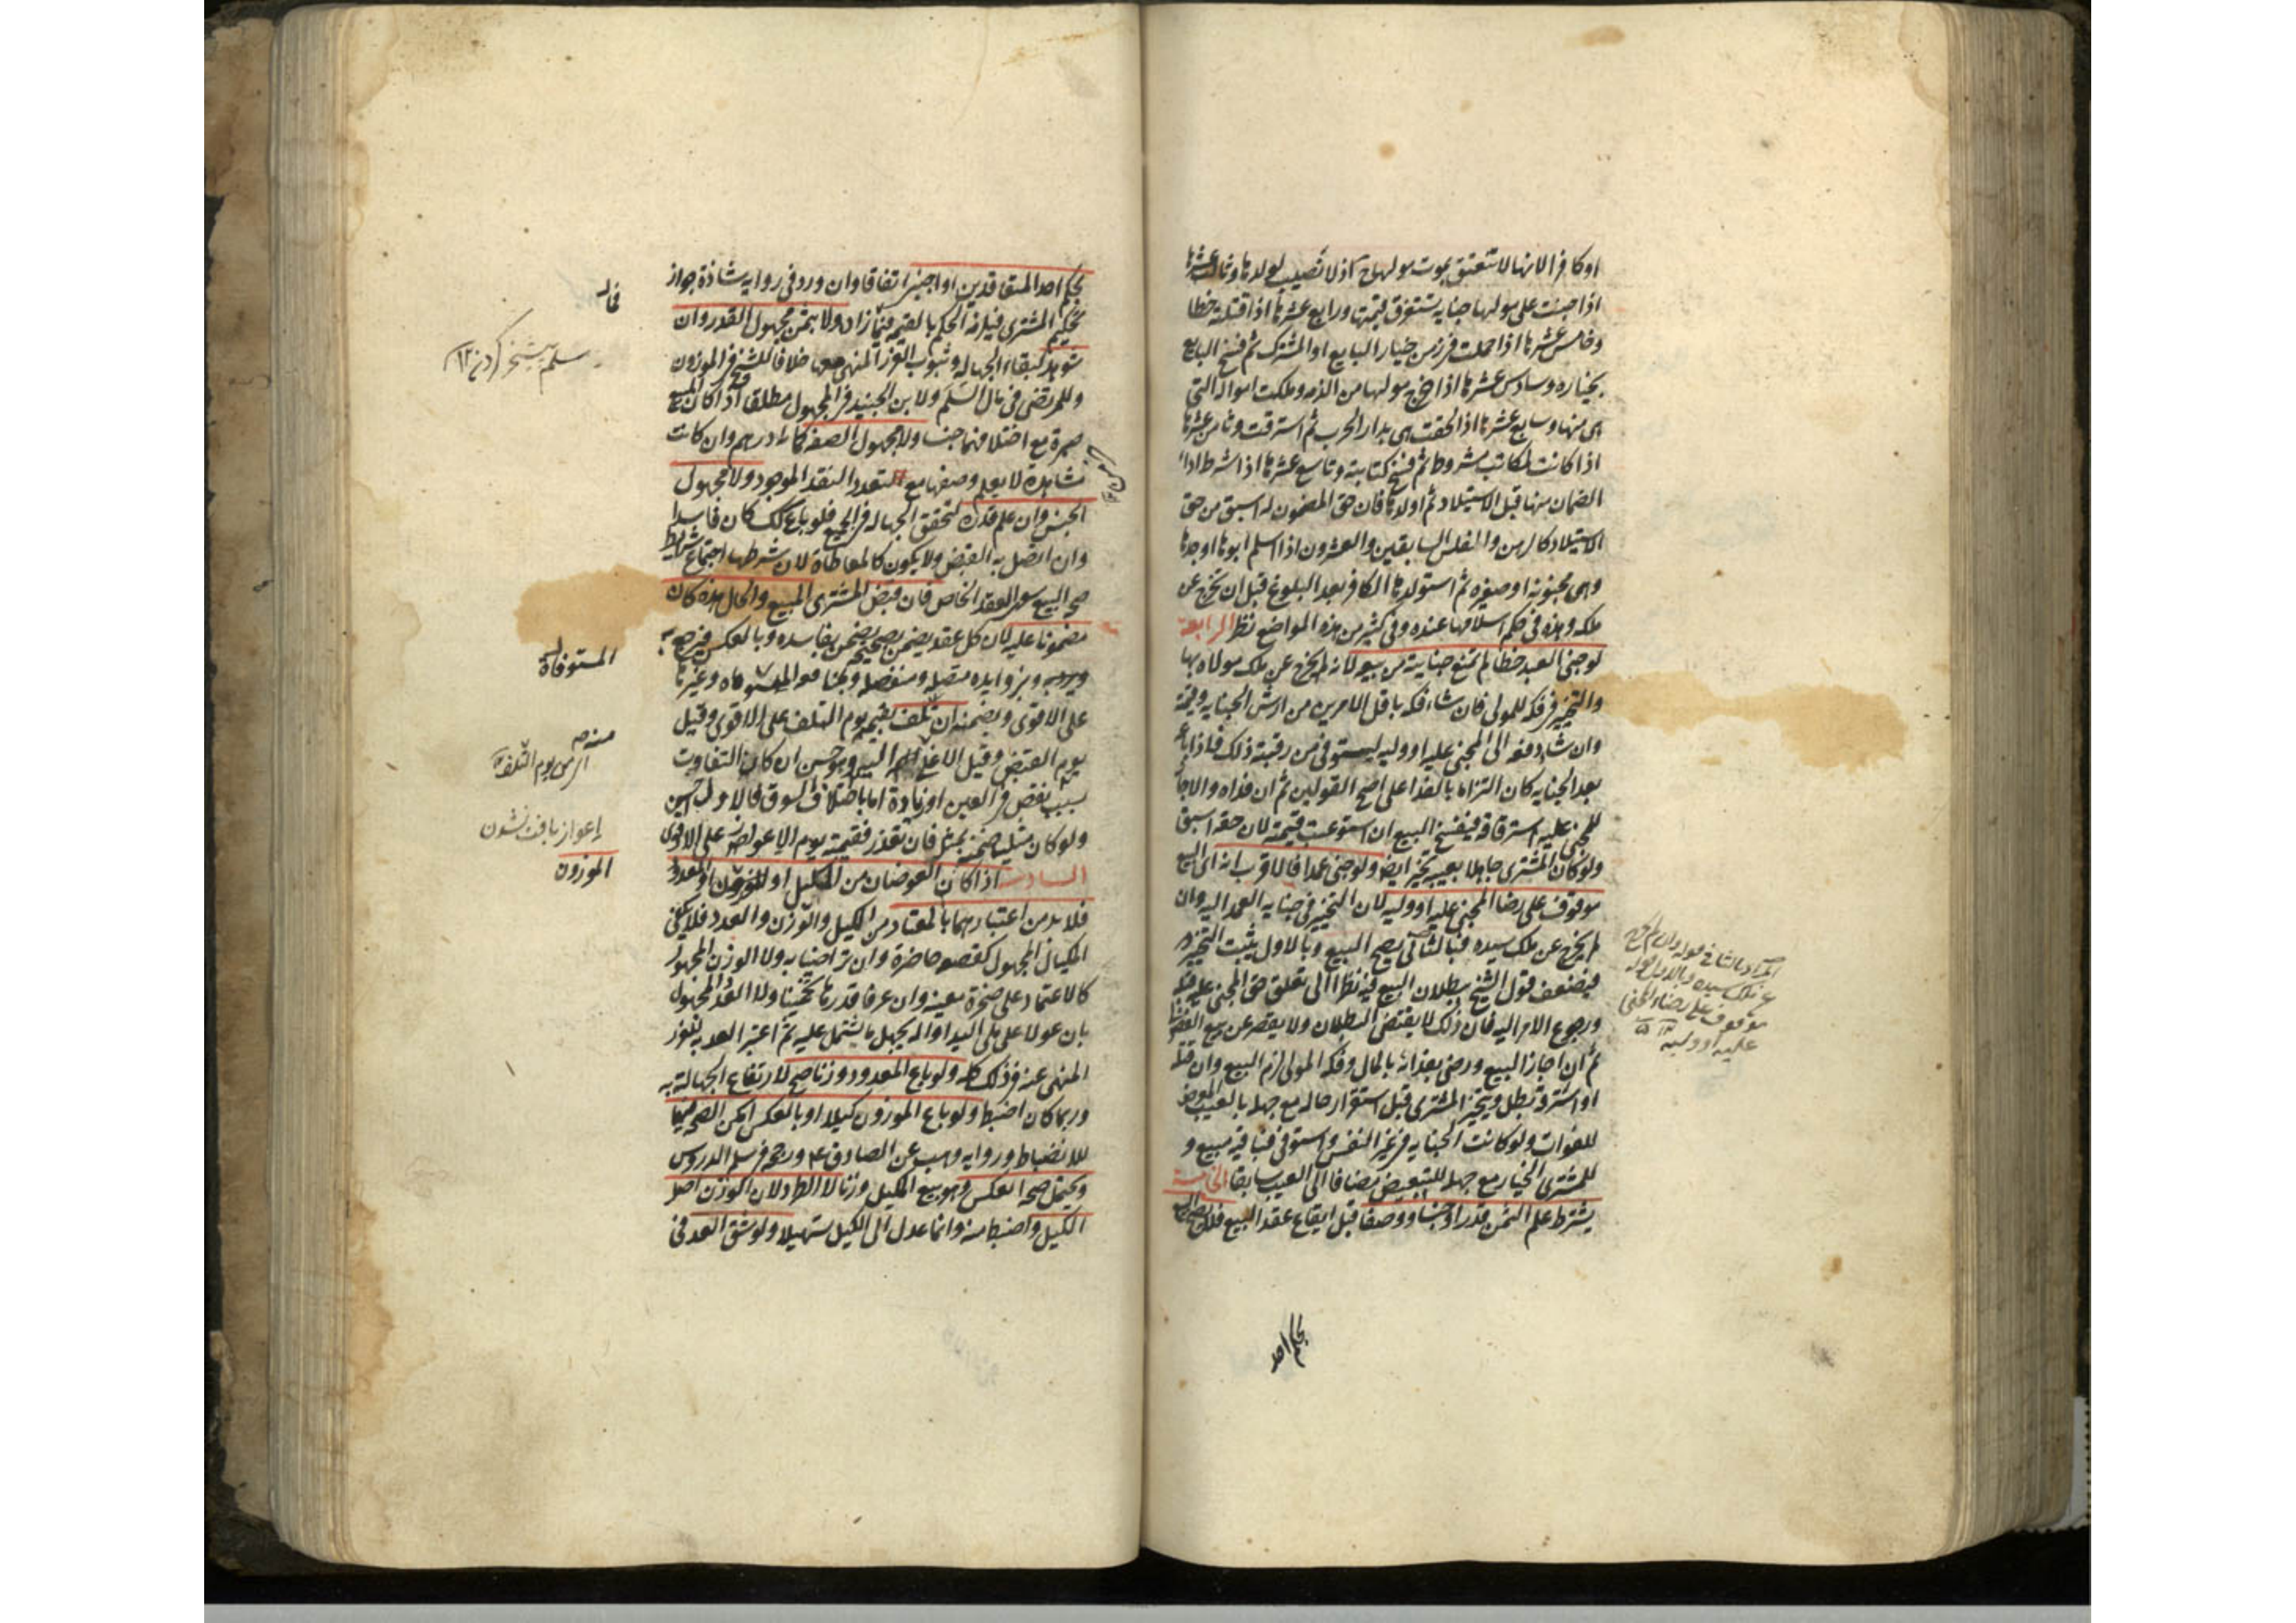 او كافرا لانها لا تنعتق بموت مولاها ح اذ لا نصيب لولدها وثالث عشرها
اذا جنت على مولاها جناية تستغرق قيمتها ورابع عشرها اذا قتلته خطا
وخامس عشرها اذا حملت في زمن خيار البايع او المشترك ثم فسخ البايع
بخياره وسادس عشرها اذا خرج مولاها من الذمه وملكت امواله التى
هى منها وسابع عشرها اذا لحقت هى بدار الحرب ثم استرقت وثامن عشرها
اذا كانت لمكاتب مشروط ثم فسخ كتابته وتاسع عشرها اذا شرط اداء
الضمان منها قبل الاستيلاد ثم اولدها فان حق المضمون له اسبق من حق
الاستيلاد كالرهن والفلس السابقين والعشرون اذا اسلم ابوها او جدها
وهى مجنونة او صغيره ثم استولدها الكافر بعد البلوغ قبل ان تخرج عن
ملكه وهذه في حكم اسلامها عنده وفى كثير من هذه المواضع نظر الرابعة
لو جنى العبد خطا لم تمنع جنايته من بيعه لانه لم يخرج عن ملك مولاه بها
والتخيير في فكه للمولى فان شاء فكه باقل الامرين من ارش الجنايه وقيمته
وان شاء دفعه الى المجنى عليه او وليه ليستوفى من رقبته ذلك فاذا باعه
بعد الجنايه كان التزاما بالفدا على اصح القولين ثم ان فداه والا جاز
للمجنى عليه استرقاقه فينفسخ البيع ان استوعبت قيمته لان حقه اسبق
ولو كان المشترى جاهلا بعيبه تخير ايضا ولو جنى عمدا فالاقرب انه اى البيع
موقوف على رضا المجنى عليه او وليه لان التخيير في جنايه العمد اليه وان
لم يخرج عن ملك سيده فبالثانى يصح البيع وبالاول يثبت التخيير
فيضعف قول الشيخ ببطلان البيع فيه نظرا الى تعلق حق المجنى عليه
ورجوع الامر اليه فان ذلك لا يقتضى البطلان ولا يقصر عن بيع الفضولى
ثم ان اجاز البيع ورضى بفدائه بالمال وفكه المولى لزم البيع وان قتله
او استرقه بطل ويتخير المشترى قبل استقرار حاله مع جهله بالعيب المعرض
للفوات ولو كانت الجنايه في غير النفس واستوفى فباقيه مبيع و
للمشترى الخيار مع جهله للتبعيض مضافا الى العيب سابقا الخامسة
يشترط علم الثمن قدرا وجنسا ووصفا قبل ايقاع عقد البيع فلا يصح البيع
بحكم احد
المراد بالثانى قوله وان لم يخرج
عن ملك سيده وبالاول قوله
موقوف على رضاء المجنى
عليه او وليه
بحكم احد المتعاقدين او اجنبى اتفاقا وان ورد فى رواية شاذة جواز
تحكيم المشترى فيلزمه الحكم بالقيمه فما زاد ولا بثمن مجهول القدر وان
شوهد لبقاء الجهاله وثبوت الغرر المنهى عنه معها خلافا للشيخ في الموزون
وللمرتضى فى مال السلم ولابن الجنيد في المجهول مطلقا اذا كان المبيع
صبرة مع اختلافهما جنسا ولا مجهول الصفه كمائة درهم وان كانت
مشاهدة لا يعلم وصفها مع تعدد النقد الموجود ولا مجهول
الجنس وان علم قدره لتحقق الجهاله في الجميع فلو باع كذلك كان فاسدا
وان اتصل به القبض ولا يكون كالمعاطاة لان شرطها اجتماع شرايط
صحه البيع سوى العقد الخاص فان قبض المشترى المبيع والحال هذه كان
مضمونا عليه لان كل عقد يضمن بصحيحه يضمن بفاسده وبالعكس فيرجع به
وبزوايده متصله ومنفصله وبمنافعه المستوفاه وغيرها
على الاقوى ويضمنه ان تلف بقيمته يوم التلف على الاقوى وقيل
يوم القبض وقيل الاعلى منه اليه وهو حسن ان كان التفاوت
بسبب نقص في العين او زيادة اما باختلاف السوق فالاول احسن
ولو كان مثليا ضمنه بمثله فان تعذر فقيمته يوم الاعواز على الاقوى
السادسة اذا كان العوضان من المكيل او الموزون او المعدود
فلا بد من اعتبارهما بالمعتاد من الكيل والوزن والعدد فلا يكفى
المكيال المجهول كقصعه حاضرة وان تراضيا به ولا الوزن المجهول
كالاعتماد على صخرة معينه وان عرفا قدرها تخمينا ولا العد المجهول
بان عولا على ملى اليد او اله يجهل ما يشتمل عليه ثم اعتبر العد به للغرر
المنهى عنه في ذلك كله ولو باع المعدود وزنا صح لارتفاع الجهالة به
وربما كان اضبط ولو باع الموزون كيلا او بالعكس امكن الصحه فيهما
للانضباط ورواية وهب عن الصادق ع ورجحه في سلم الدروس
ويحتمل صحه العكس وهو بيع المكيل وزنا لا الطرد لان الوزن اصل
الكيل واضبط منه وانما عدل الى الكيل تسهيلا ولو شق العد فى
المستوفاة
منه ص
الى من يوم التلف
الموزون